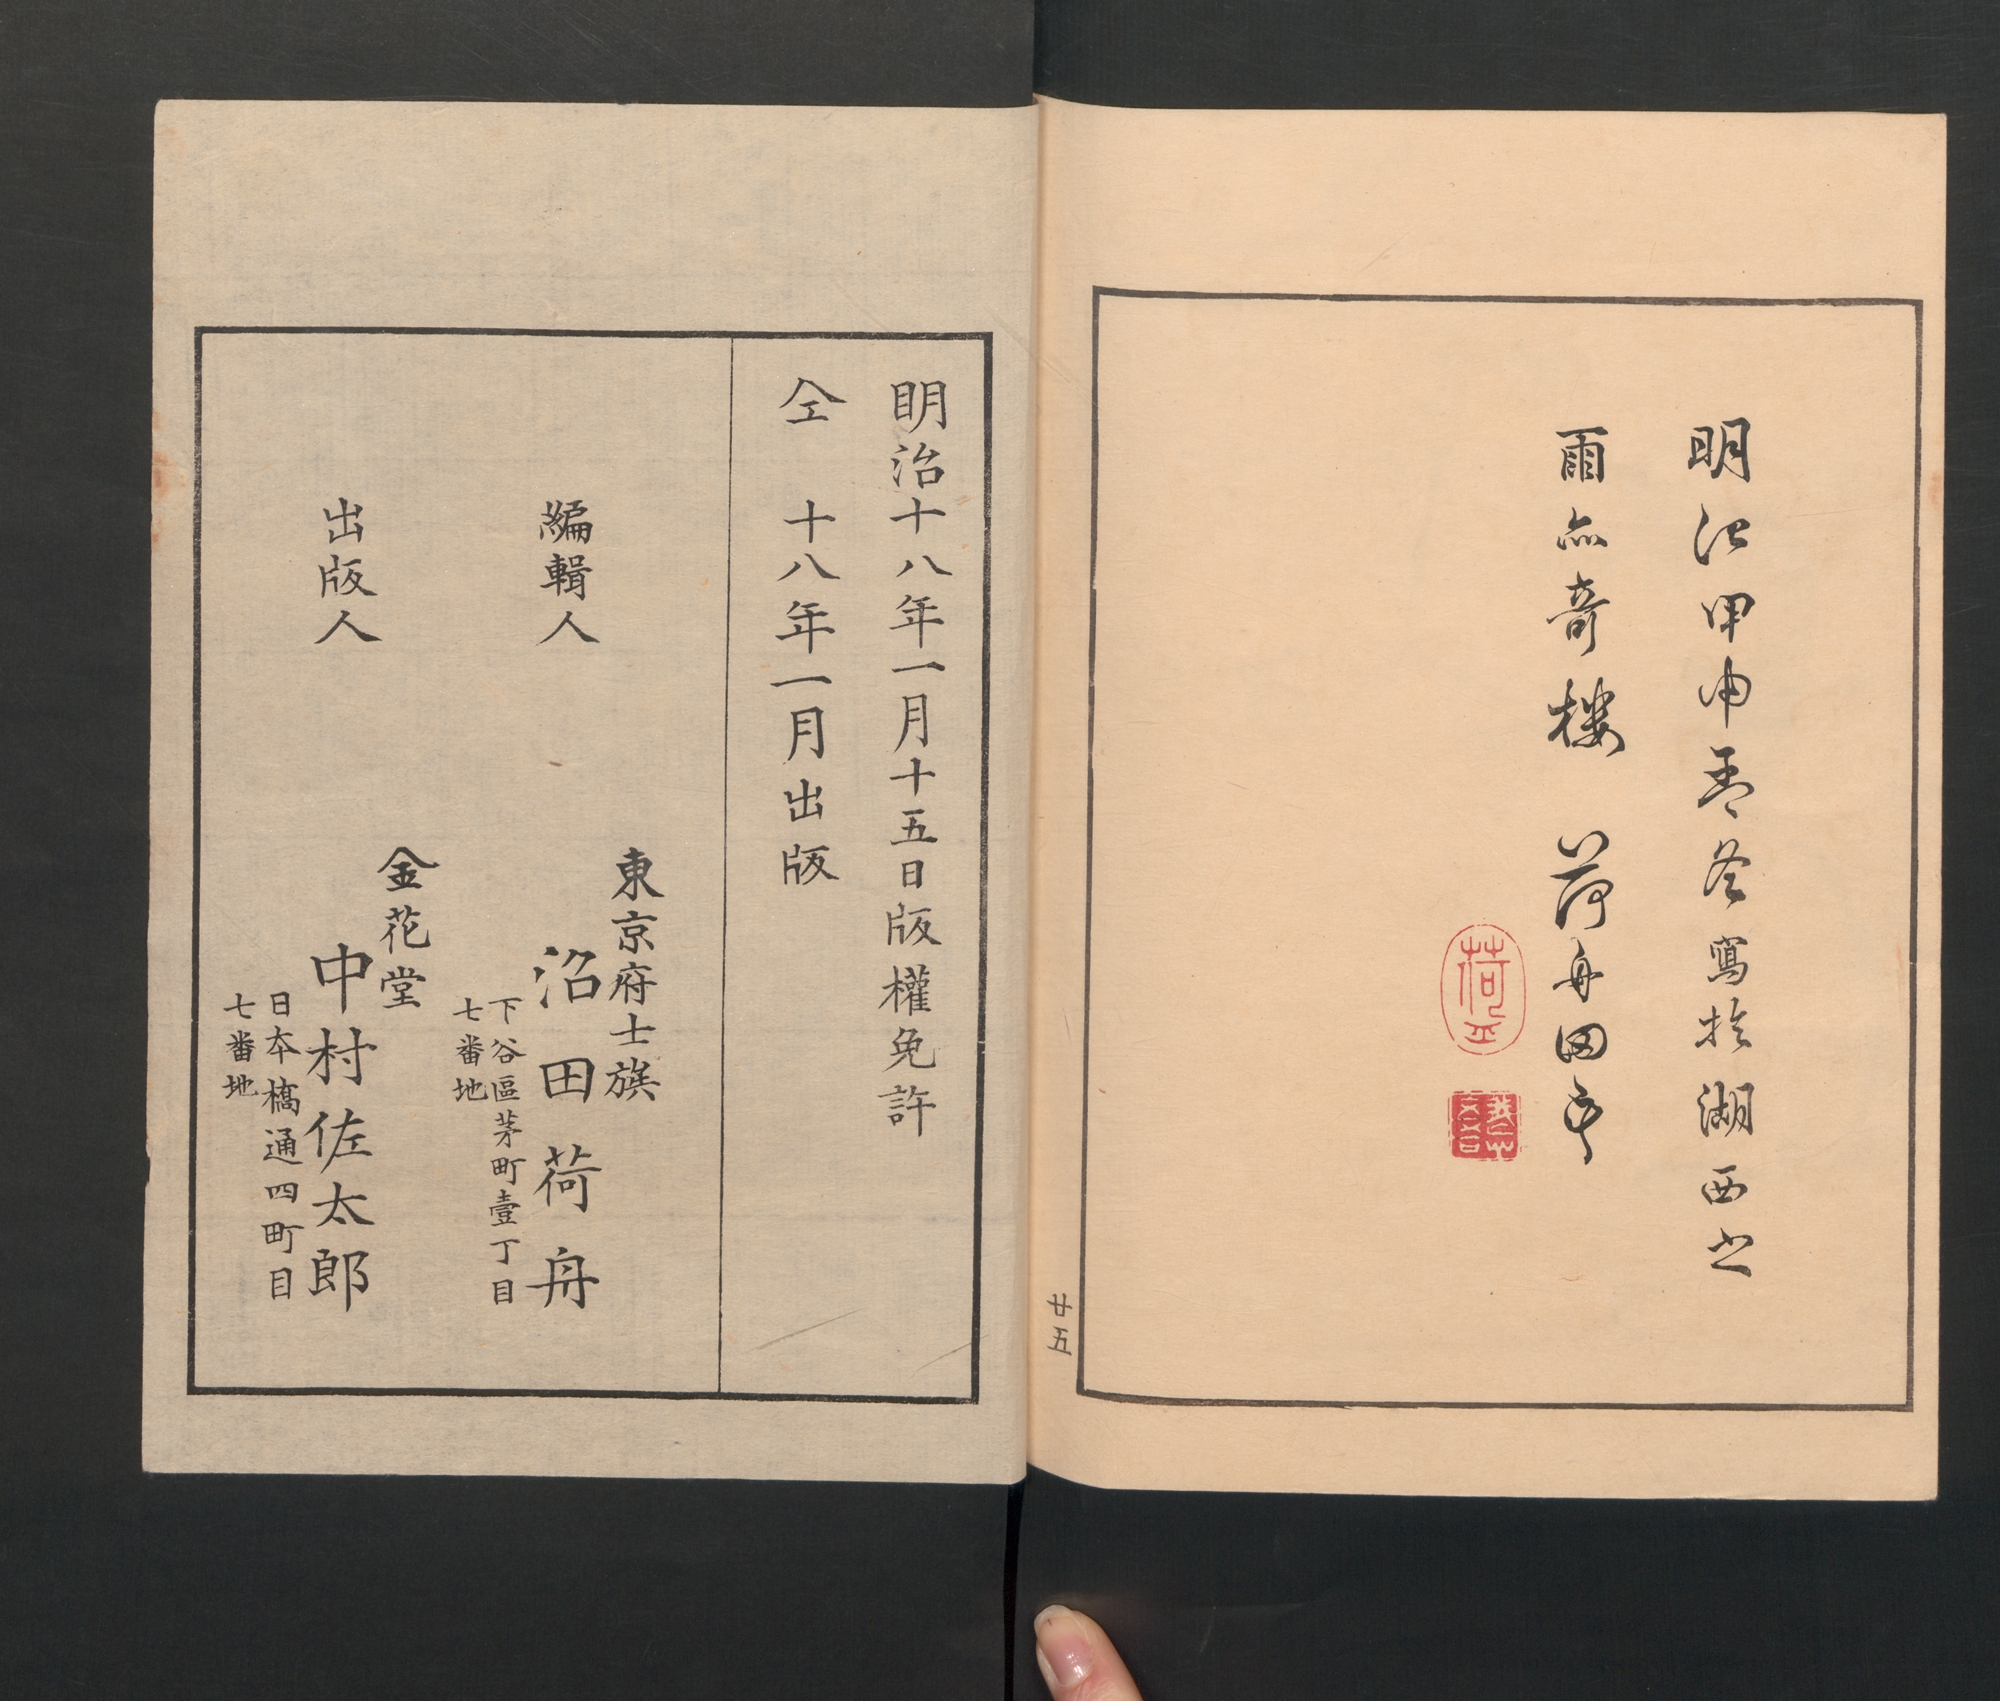 明治甲申孟冬寫於湖西之
雨亦奇樓 荷舟田
荷
廿五
明治十八年一月十五日版權免許
仝 十八年一月出版
編輯人
東京府士族
沼田荷舟
下谷區茅町壹丁目
七番地
出版人
金花堂
中村佐太郎
日本橋通四町目
七番地